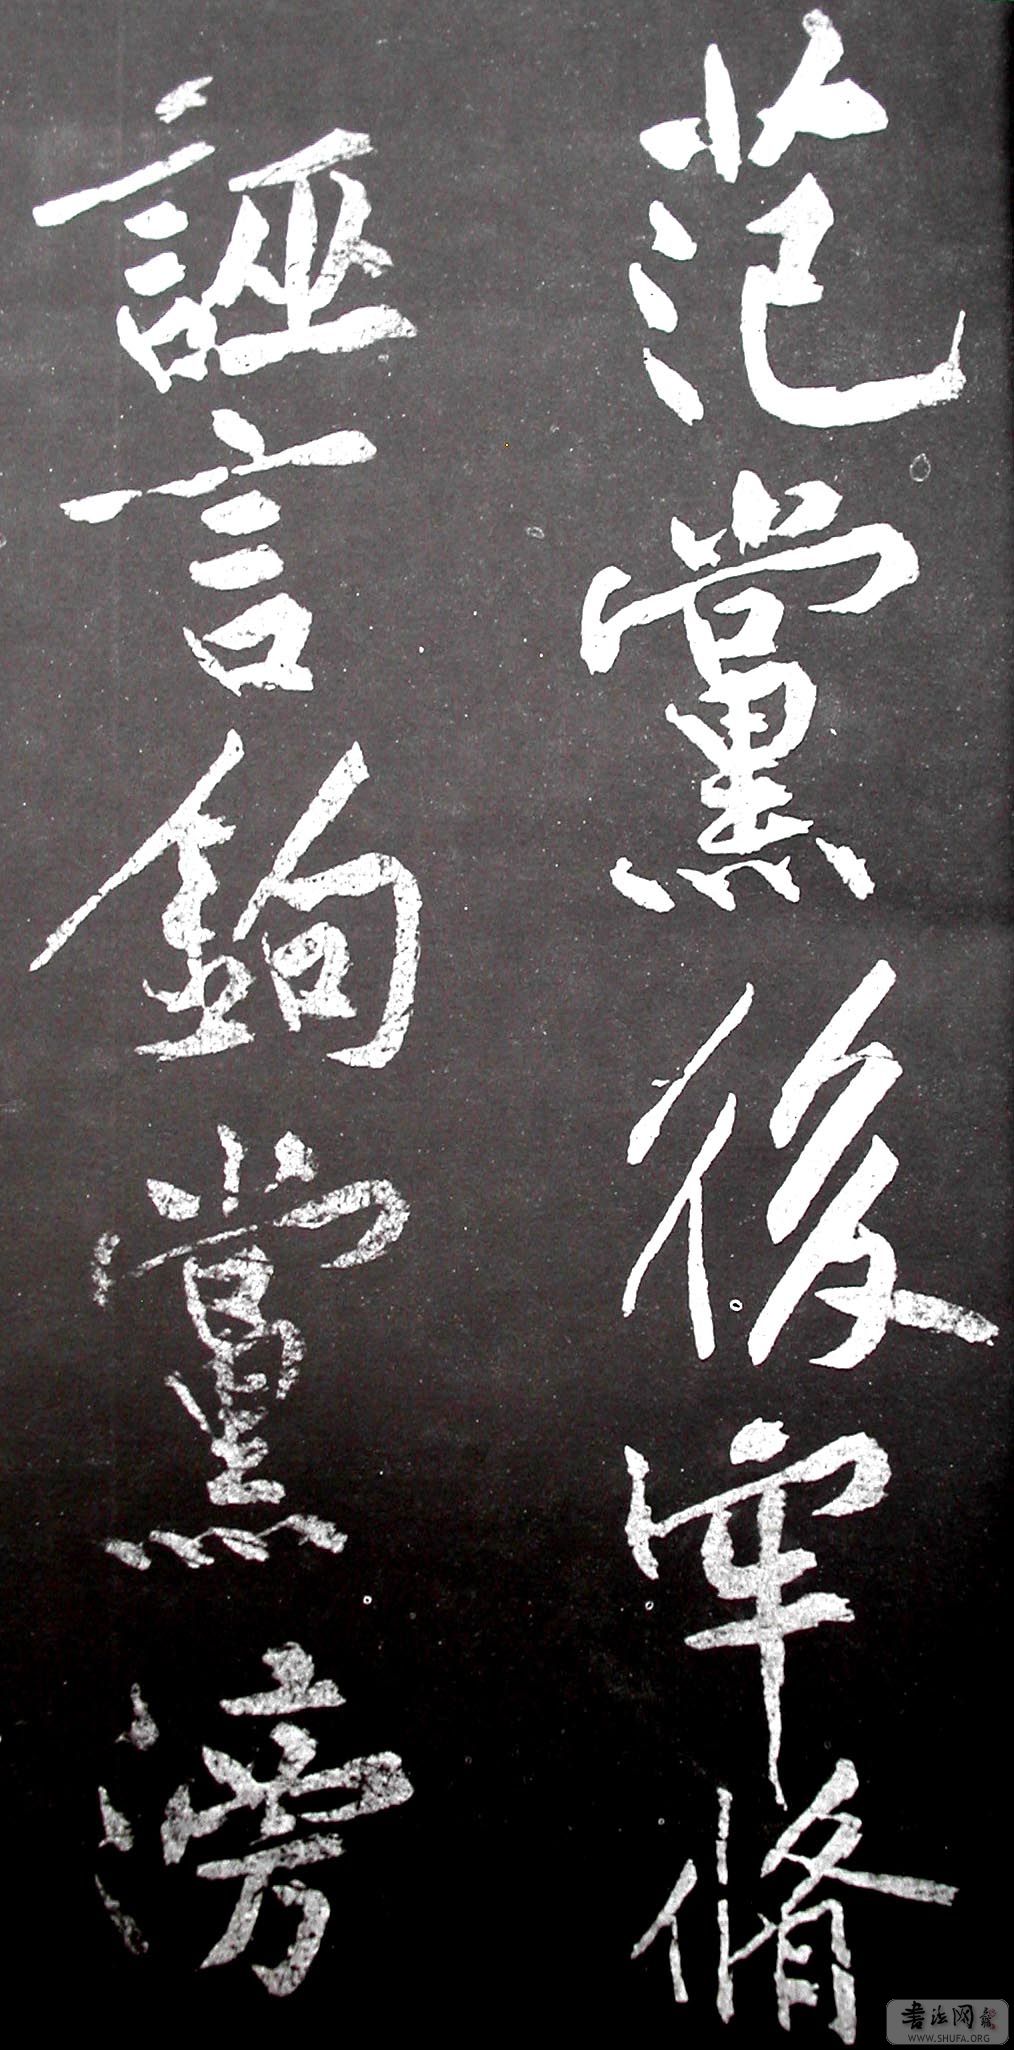 范黨後牢脩
誣言鉤黨滂
书法网
WWW.SHUFA.ORG